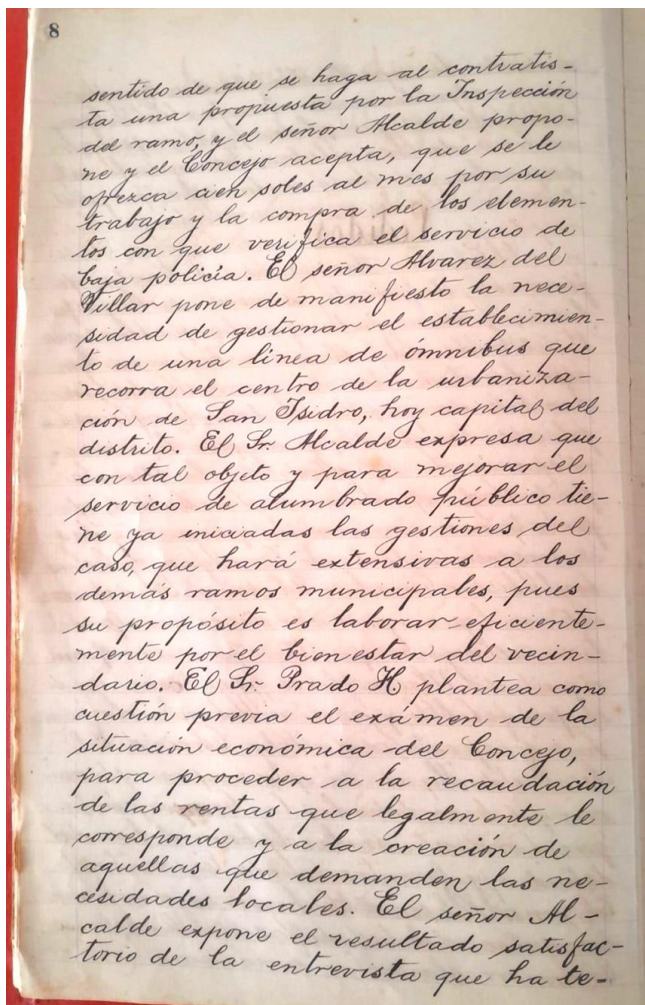 8
sentido de que se haga al contratis-
ta una propuesta por la Inspección
del ramo, y el señor Alcalde propo-
ne y el Concejo acepta, que se le
ofrezca cien soles al mes por su
trabajo y la compra de los elemen-
tos con que verifica el servicio de
baja policía. El señor Alvarez del
Villar pone de manifiesto la nece-
sidad de gestionar el establecimien-
to de una linea de ómnibus que
recorra el centro de la urbaniza-
ción de San Isidro, hoy capital del
distrito. El Sr. Alcalde expresa que
con tal objeto y para mejorar el
servicio de alumbrado público tie-
ne ya iniciadas las gestiones del
caso, que hará extensivas a los
demás ramos municipales, pues
su propósito es laborar eficiente-
mente por el bienestar del vecin-
dario. El Sr. Prado H plantea como
cuestión previa el exámen de la
situación económica del Concejo,
para proceder a la recaudación
de las rentas que legalmente le
corresponde y a la creación de
aquellas que demanden las ne-
cesidades locales. El señor Al-
calde expone el resultado satisfac-
torio de la entrevista que ha te-